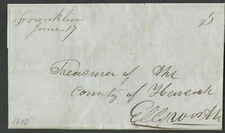 Franklin
June 17
5
Treasurer of the
County of Hancock
Ellsworth